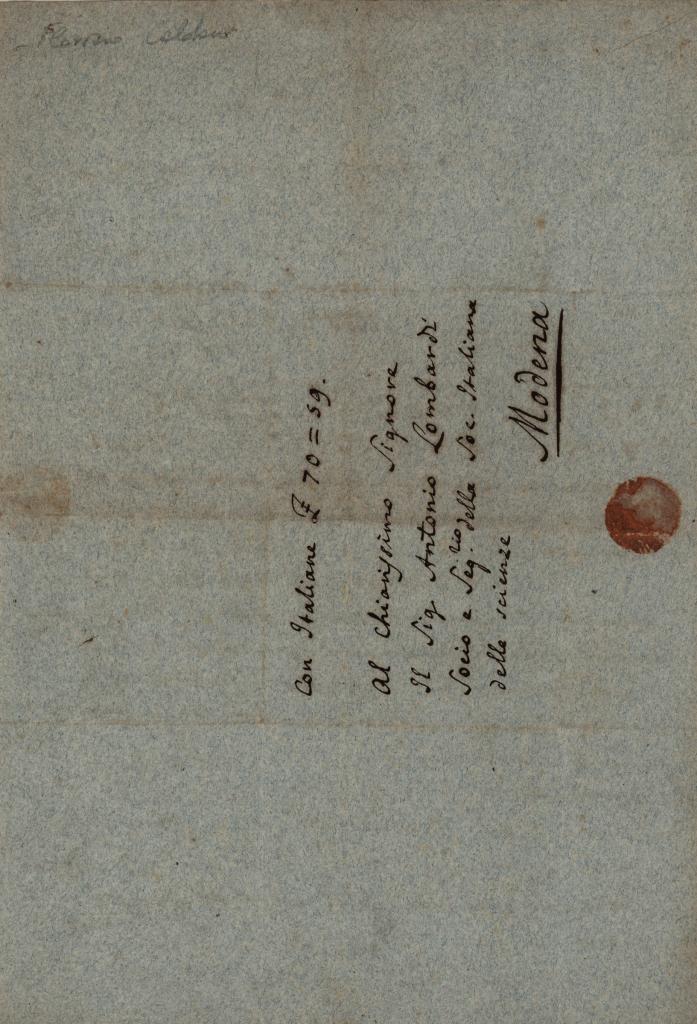 Con Italiane £ 70=59.
Al Chiarissimo Signore
Il Sig Antonio Lombardi
Socio e Seg.rio della Soc. Italiana
delle scienze
Modena